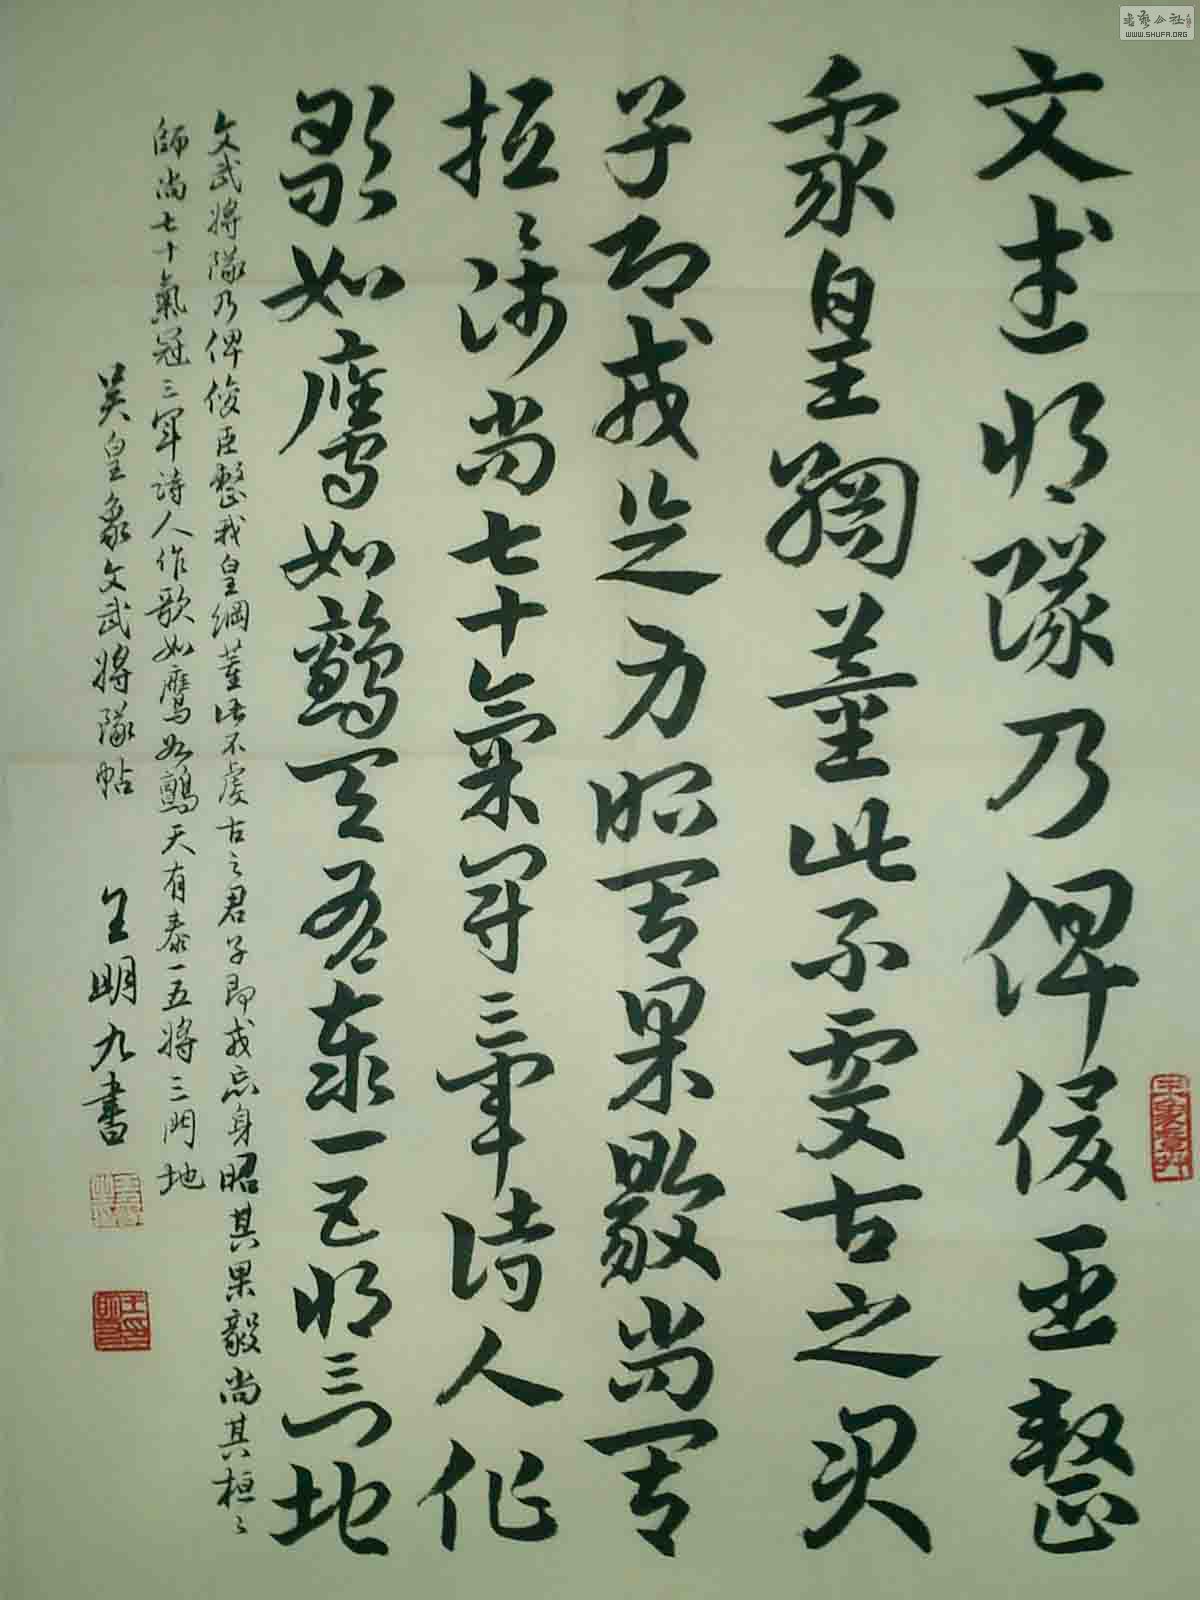 文武将隊乃俾俊臣整
我皇綱董此不虔古之君
子即戎忘身昭其果毅尚其
桓〻師尚七十氣冠三軍詩人作
歌如鹰如鸇天有泰一五将三門地
文武將隊乃俾俊臣整我皇綱董此不虔古之君子即戎忘身昭其果毅尚其桓〻
師尚七十氣冠三軍詩人作歌如鹰如鸇天有泰一五将三門地
吴皇象文武将隊帖 王明九書
書藝公社
WWW.SHUFA.ORG